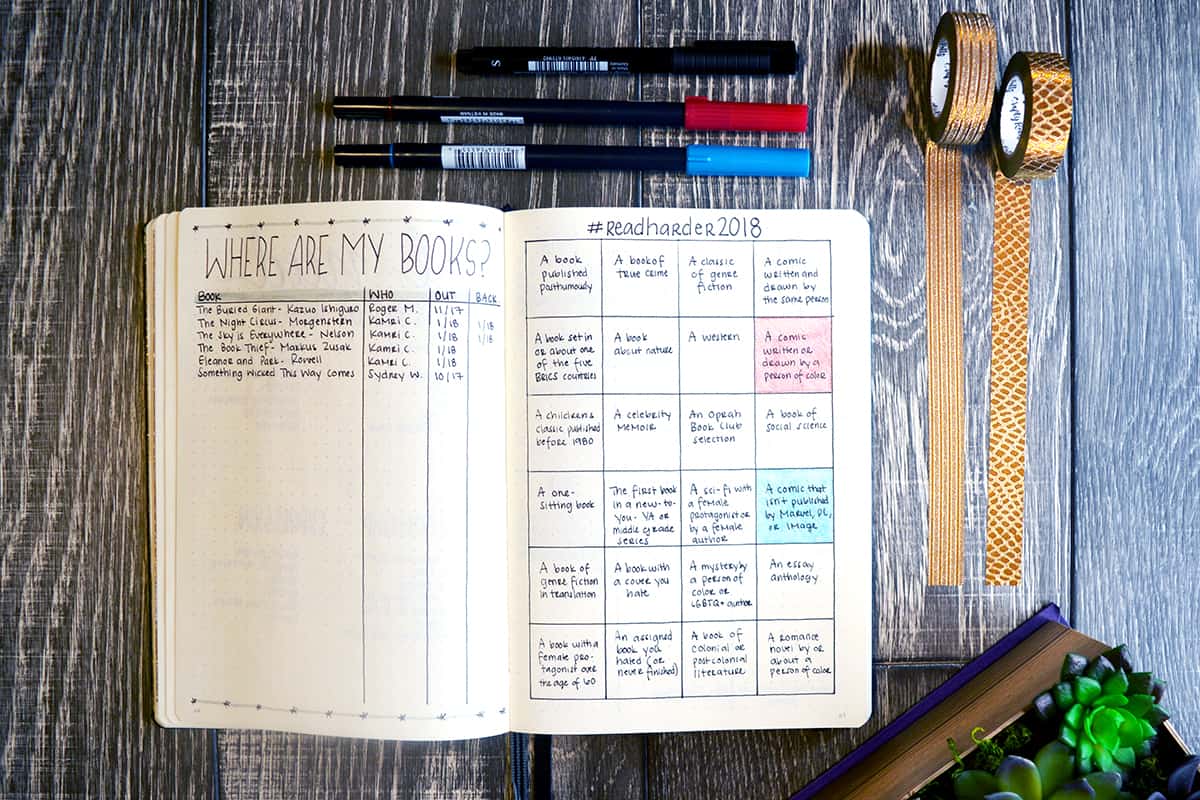 MADE IN VIETNAM
S
WHERE ARE MY BOOKS?
BOOK WHO OUT BACK
The Buried Giant - Kazuo Ishiguro Roger M. 11/17
The Night Circus - Morgenstern Kamri C. 1/18 1/18
The Sky is Everywhere - Nelson Kamri C. 1/18 1/18
The Book Thief - Markus Zusak Kamri C. 1/18
Eleanor and Park - Rowell Kamri C. 1/18
Something Wicked This Way Comes Sydney W. 10/17
#Readharder2018
A book
published
posthumously
A book of
true crime
A classic
of genre
fiction
A comic
written and
drawn by
the same person
A book set in
or about one
of the five
BRICS countries
A book
about nature
A western
A comic
written or
drawn by a
person of color
A childrens
classic published
before 1980
A celebrity
memoir
An Oprah
Book Club
selection
A book of
social science
A one-
sitting book
The first book
in a new-to-
you- YA or
middle grade
series
A sci-fi with
a female
protagonist or
by a female
author
A comic that
isn't published
by Marvel, DC,
or Image
A book of
genre fiction
in translation
A book with
a cover you
hate
A mystery by
a person of
color or
LGBTQ+ author
An essay
anthology
A book with a
female pro-
tagonist over
the age of 60
An assigned
book you
hated (or
never finished)
A book of
colonial or
postcolonial
literature
A romance
novel by or
about a
person of color